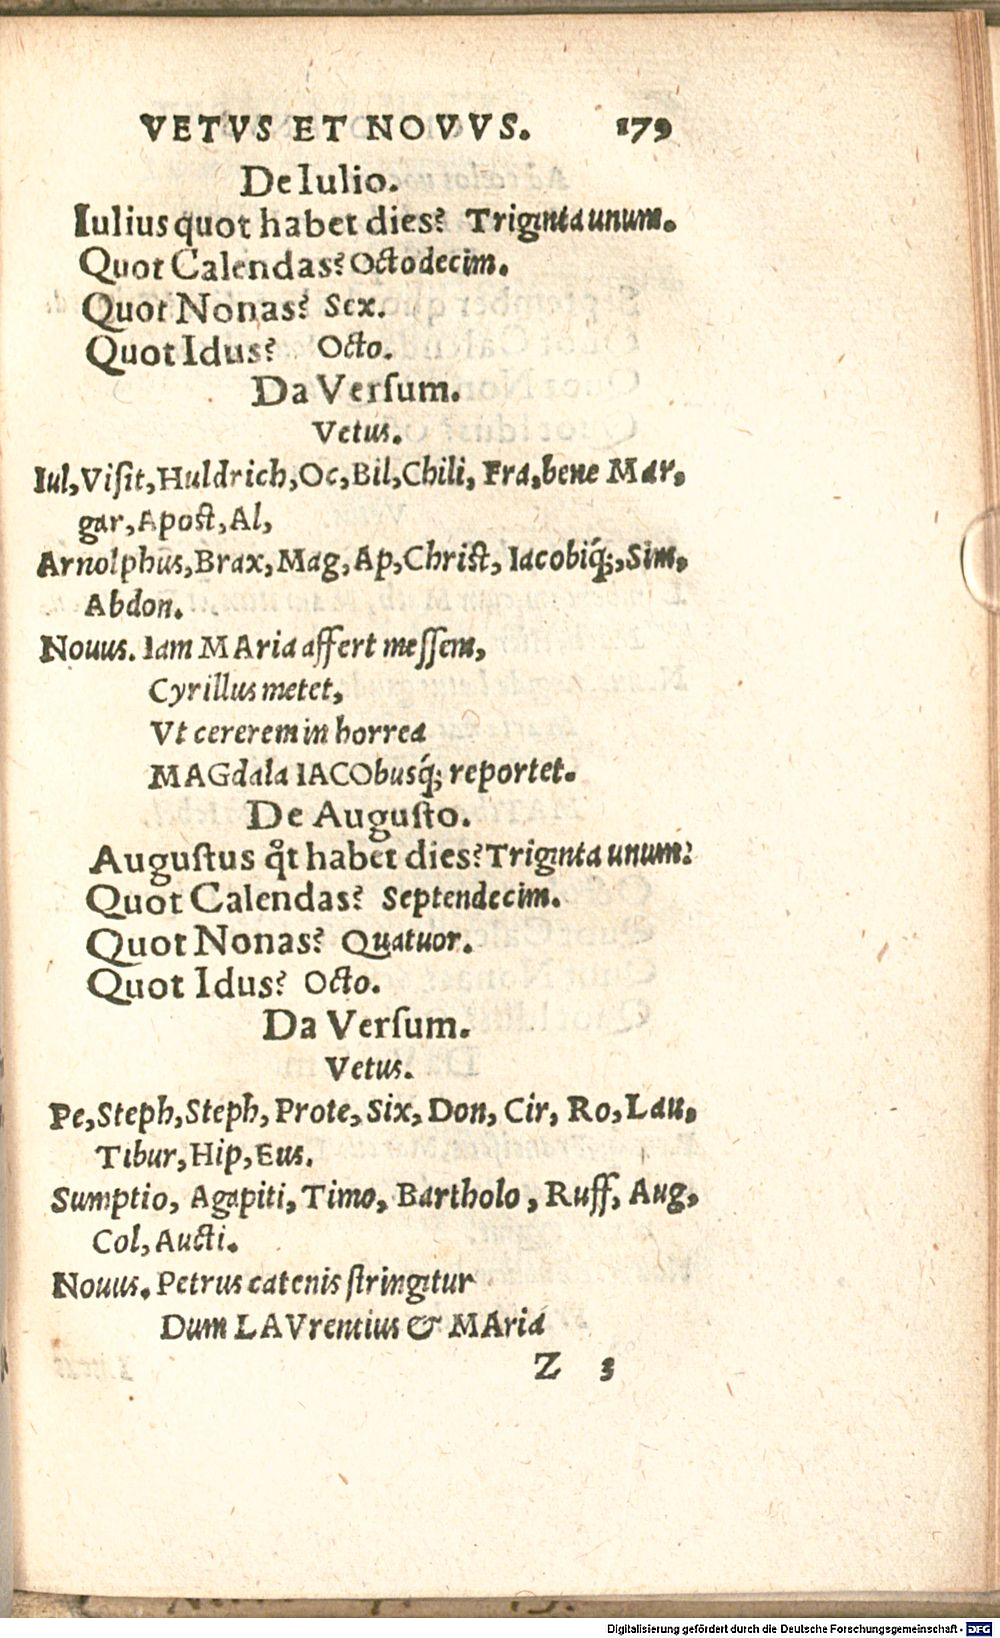 VETVS ET NOVVS. 179
De Iulio.
Iulius quot habet dies? Triginta unum.
Quot Calendas? Octodecim.
Quot Nonas? Sex.
Quot Idus? Octo.
Da Verſum.
Vetus.
Iul, Viſit, Huldrich, Oc, Bil, Chili, Fra, bene Mar,
gar, Apoſt, Al,
Arnolphus, Brax, Mag, Ap, Chriſt, Iacobiq́;, Sim,
Abdon.
Nouus. Iam MAria affert meſſem,
Cyrillus metet,
Vt cererem in horrea
MAGdala IACObusq́; reportet.
De Auguſto.
Auguſtus q̊t habet dies? Triginta unum.
Quot Calendas? Septendecim.
Quot Nonas? Quatuor.
Quot Idus? Octo.
Da Verſum.
Vetus.
Pe, Steph, Steph, Prote, Six, Don, Cir, Ro, Lau,
Tibur, Hip, Eus.
Sumptio, Agapiti, Timo, Bartholo, Ruff, Aug,
Col, Aucti.
Nouus. Petrus catenis ſtringitur
Dum LAVrentius & MAria
Z 3
Digitalisierung gefördert durch die Deutsche Forschungsgemeinschaft - DFG